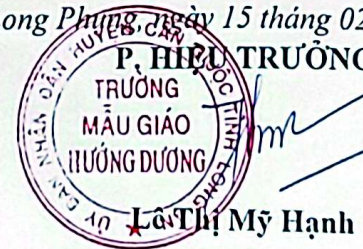 ong Phụng, ngày 15 tháng 02
P. HIỆU TRƯỞNG
ỦY BAN NHÂN DÂN HUYỆN CẦN GIUỘC TỈNH LONG AN
TRƯỜNG
MẪU GIÁO
HƯỚNG DƯƠNG
Lê Thị Mỹ Hạnh